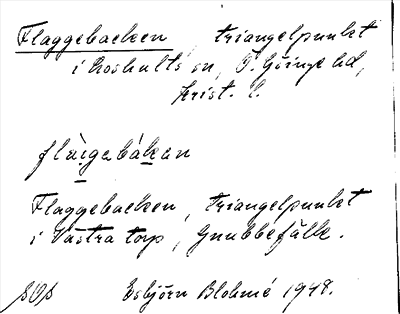 Flaggebacken, triangelpunkt
i Loshults sn, Ö. Göinge hd,
Krist. l.
flàgəbákən
Flaggebacken, triangelpunkt
i Västra torp, Gnubbefälle.
SOS Esbjörn Blohmé 1948.